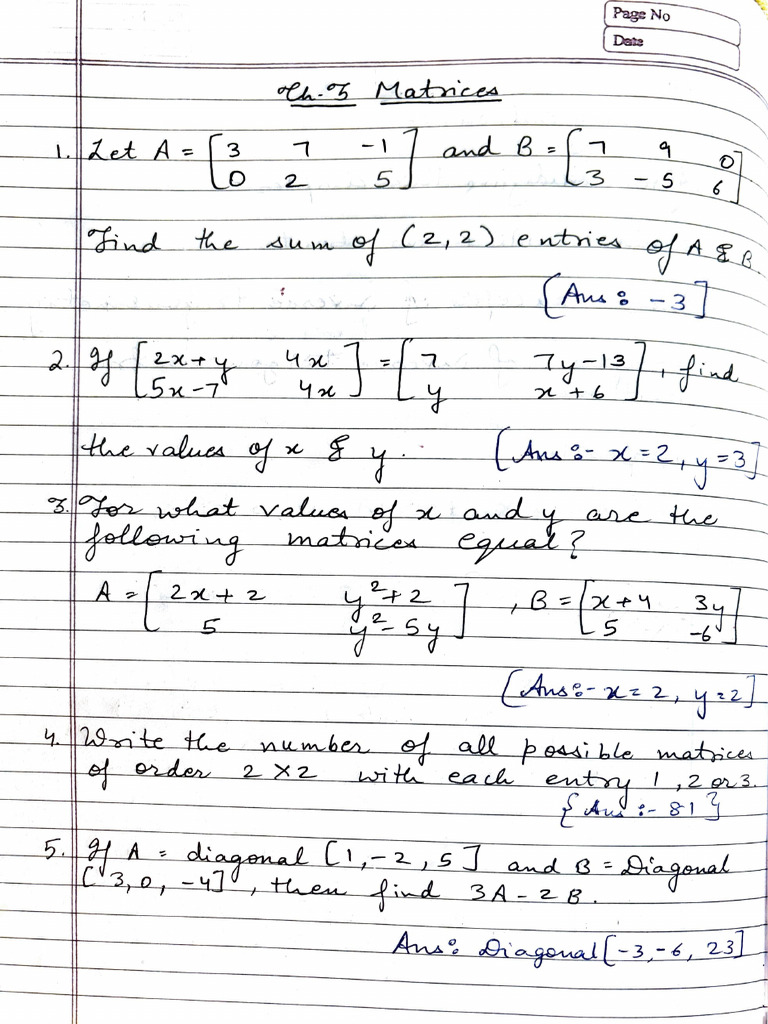 Page No
Date
Ch-5 Matrices
1. Let A = [3 7 -1 and B = [7 9 0
0 2 5] 3 -5 6]
Find the sum of (2,2) entries of A & B.
[Ans: -3]
2. If [2x+y 4x = [7 7y-13 , find
5x-7 4x] y x+6]
the values of x & y. [Ans:- x=2, y=3]
3. For what values of x and y are the
following matrices equal?
A = [2x+2 y²+2 , B = [x+4 3y
5 y²-5y] 5 -6]
[Ans:- x=2, y=2]
4. Write the number of all possible matrices
of order 2×2 with each entry 1,2 or 3.
{Ans:- 81}
5. If A = diagonal [1,-2,5] and B = Diagonal
[3,0,-4], then find 3A-2B.
Ans: Diagonal[-3,-6, 23]